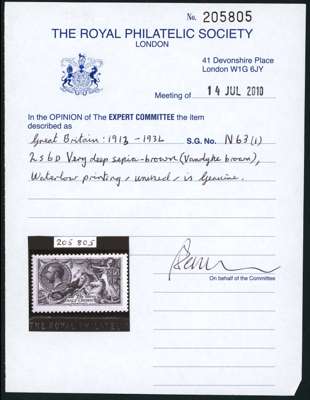 No. 205805
THE ROYAL PHILATELIC SOCIETY
LONDON
41 Devonshire Place
London W1G 6JY
Meeting of 14 JUL 2010
In the OPINION of The EXPERT COMMITTEE the item
described as
Great Britain: 1913 - 1934 S.G. No. N63(1)
2s6D Very deep sepia-brown (Vandyke brown),
Waterlow printing, unused, is Genuine.
205805
HALF CROWN
THE ROYAL PHILATELI
On behalf of the Committee